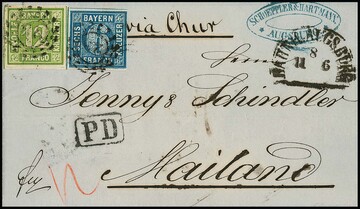 12
FRANCO
BAYERN
SECHS
KREUZER
6
FRANCO
via Chur
SCHOEPPLER & HARTMANN
* AUGSBURG *
AUGSBURG
8
11 6
Herren
Jenny & Schindler
PD
Mailand